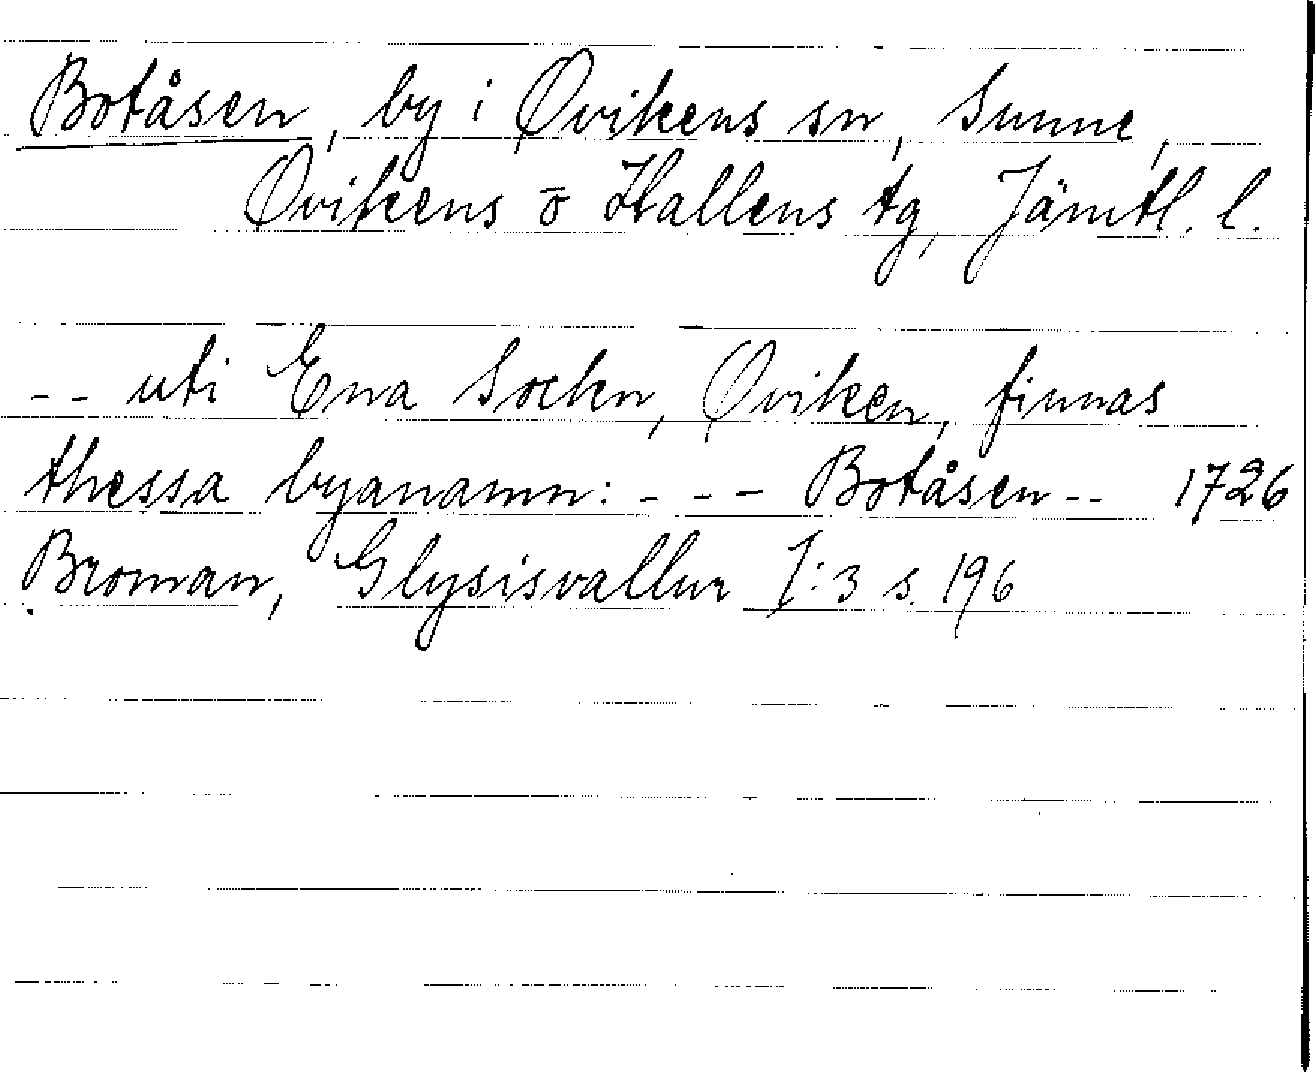 Botåsen, by i Ovikens sn, Sunne,
Ovikens o Hallens tg, Jämtl. l.
-- uti Ena Sockn, Oviken, finnas
thessa byanamn: - - - Botåsen -- 1726
Broman, Glysisvallur I:3 s. 196